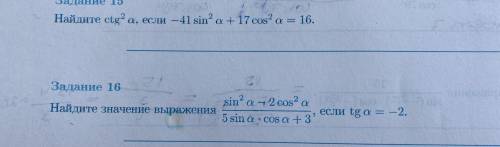 Задание 15
Найдите ctg² α, если −41 sin² α + 17 cos² α = 16.
Задание 16
Найдите значение выражения (sin² α − 2 cos² α)/(5 sin α · cos α + 3), если tg α = −2.